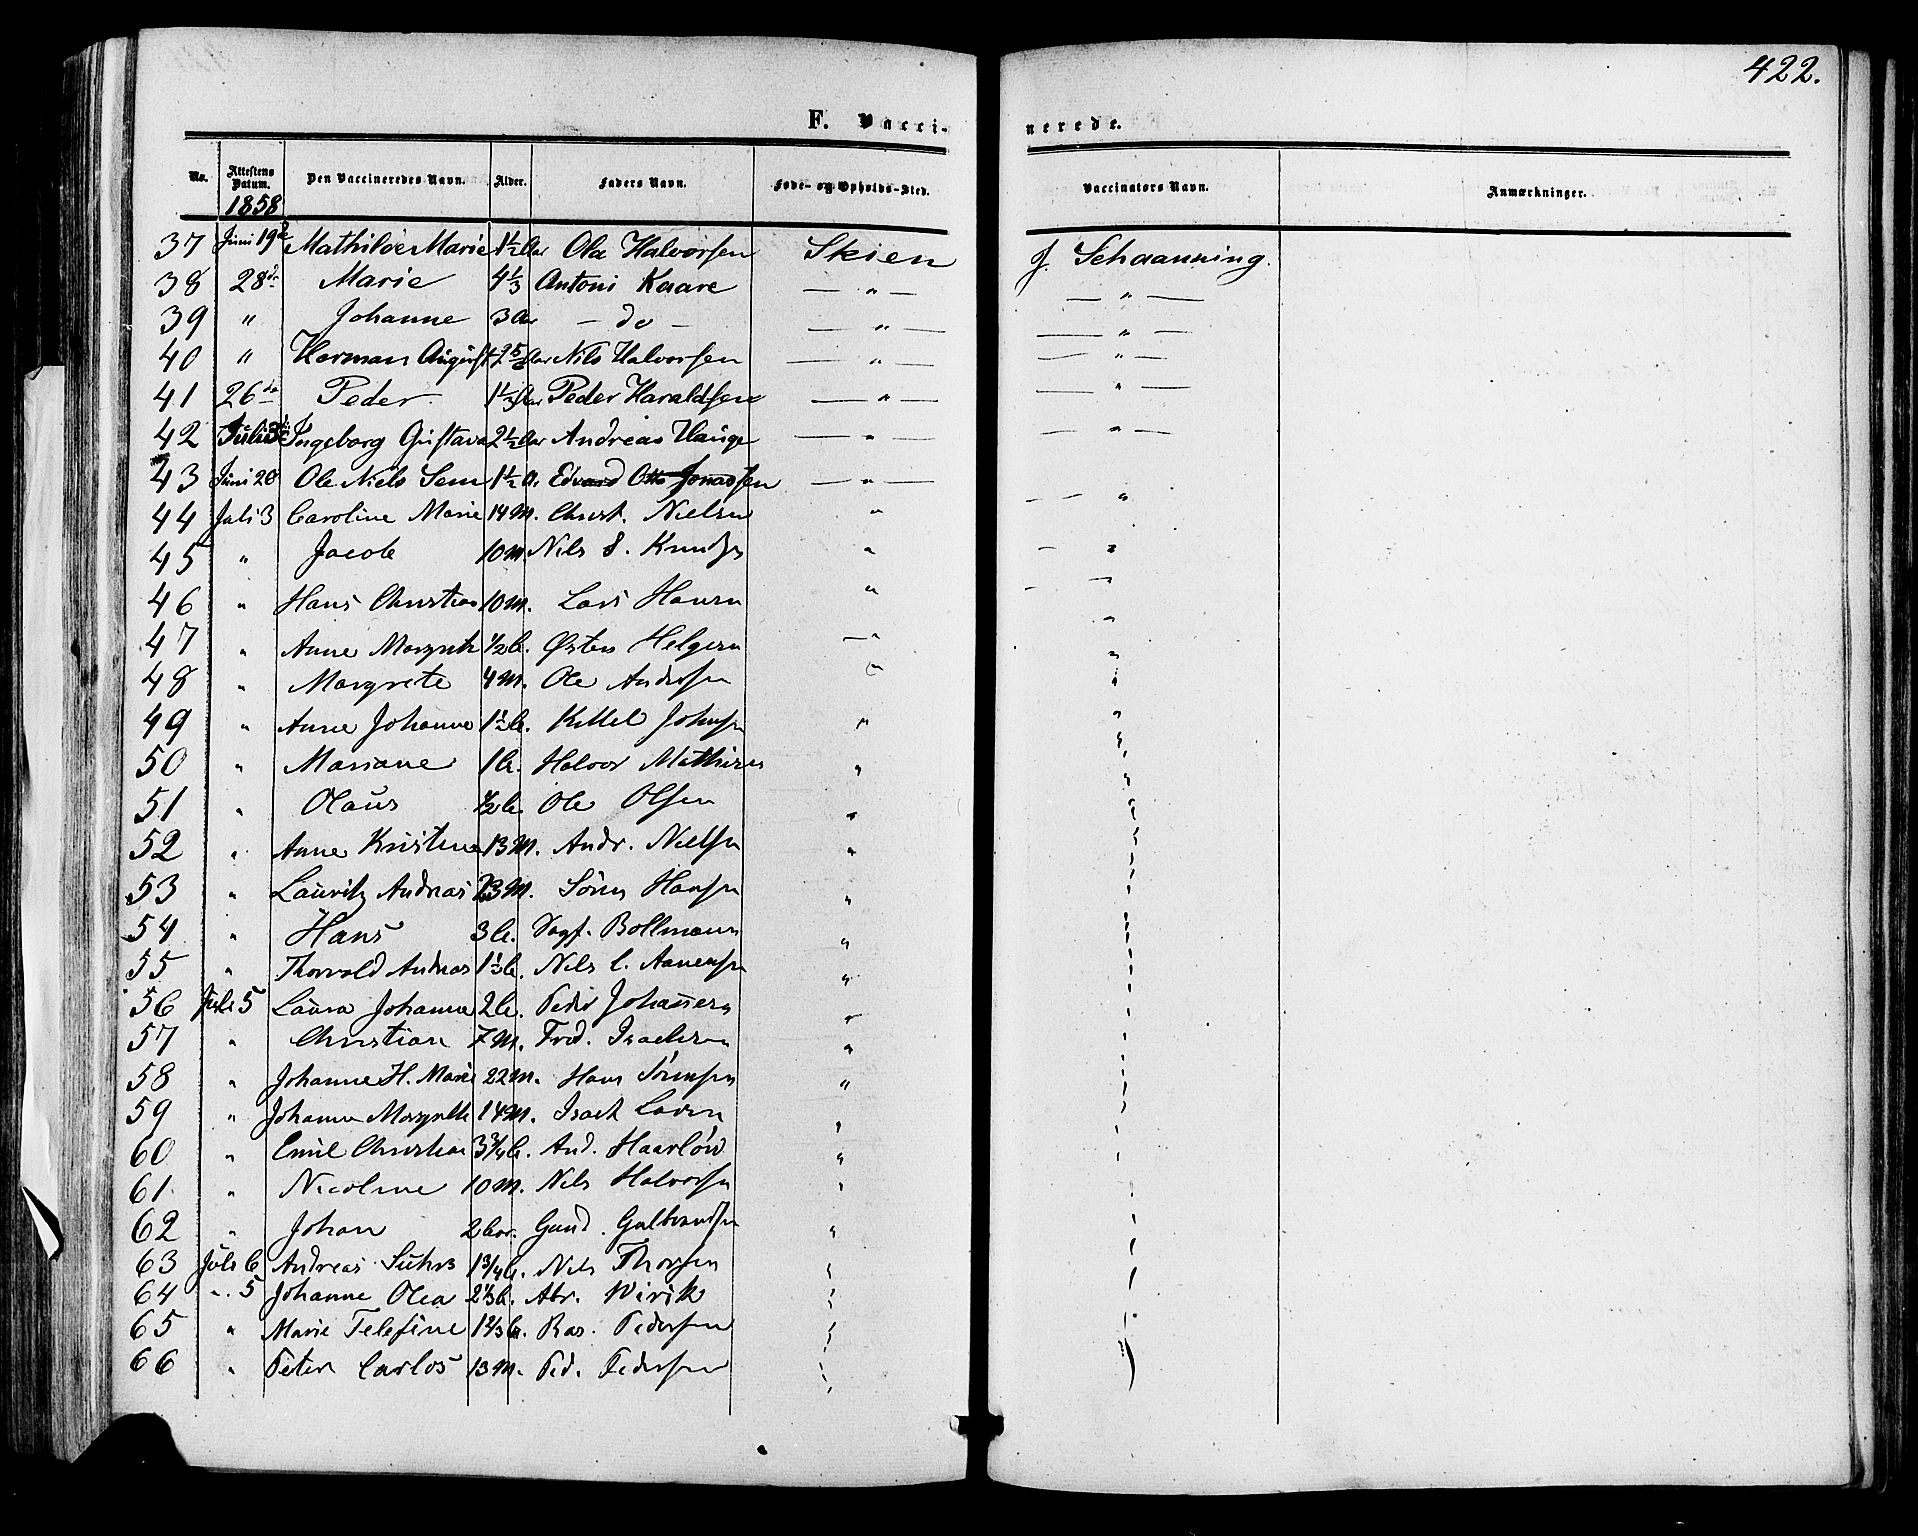 422.
F. Vaccinerede.
No. Attestens Datum. Den Vaccineredes Navn. Alder. Faders Navn. Føde- og Opholds-Sted. Vaccinators Navn. Anmærkninger.
1858
37 Juni 19de Mathilde Marie 1½ Aar Ola Halvorsen Skien J. Schaanning.
38 28de Marie 4⅓ Antoni Kaare — " — — " —
39 " Johanne 3 Aar — do — — " — — " —
40 " Herman August Aar Nils Halvorsen — " — — " —
41 26de Peder 1½ Aar Peder Haraldsen — " — — " —
42 Juli Ingeborg Gustava 2½ Aar Andreas Hauge — " — — " —
43 Juni 28 Ole Niels Sem 1½ A. Edvard Otto Jonassen — " — — " —
44 Juli 3 Caroline Marie 14 M. Christ. Nielsen " "
45 " Jacob 10 M. Nils S. Knudsen " — "
46 " Hans Christian 10 M. Lars Hansen " —
47 " Anne Margreth ½ A. Østen Helgesen — " "
48 " Margrete 4 M. Ole Andersen " "
49 " Anne Johanne 1½ A. Kittel Johnsen " "
50 " Mariane 1 A. Halvor Mathisen " "
51 " Olaus ½ A. Ole Olsen " "
52 " Anne Kristine 13 M. Andr. Nielsen " "
53 " Lauritz Andreas 13 M. Sören Hansen " "
54 " Hans 3 A. Sagf. Bollmann " "
55 " Thorvald Andreas 1⅓ A. Nils C. Aanensen " "
56 Juli 5 Laura Johanne 2 A. Peder Johannesen " "
57 " Christian 7 M. Fred. Isachsen " "
58 " Johanne H. Marie 22 M. Hans Sörensen " "
59 " Johanne Margrethe 14 M. Isach Larsen " "
60 " Emil Christian 3¾ A. And. Haarlöw " "
61 " Nicoline 10 M. Nils Halvorsen " "
62 " Johan 2 Aar. Gund. Gulbrandsen " "
63 Juli 6 Andreas Suhrs 1¾ A. Nils Thorsen " "
64 " 5 Johanne Olea 2⅓ A. Abr. Wirik " "
65 " Marie Telefine 1⅔ A. Ras. Pedersen " "
66 " Peter Carlos 13 M. Ped. Pedersen " "